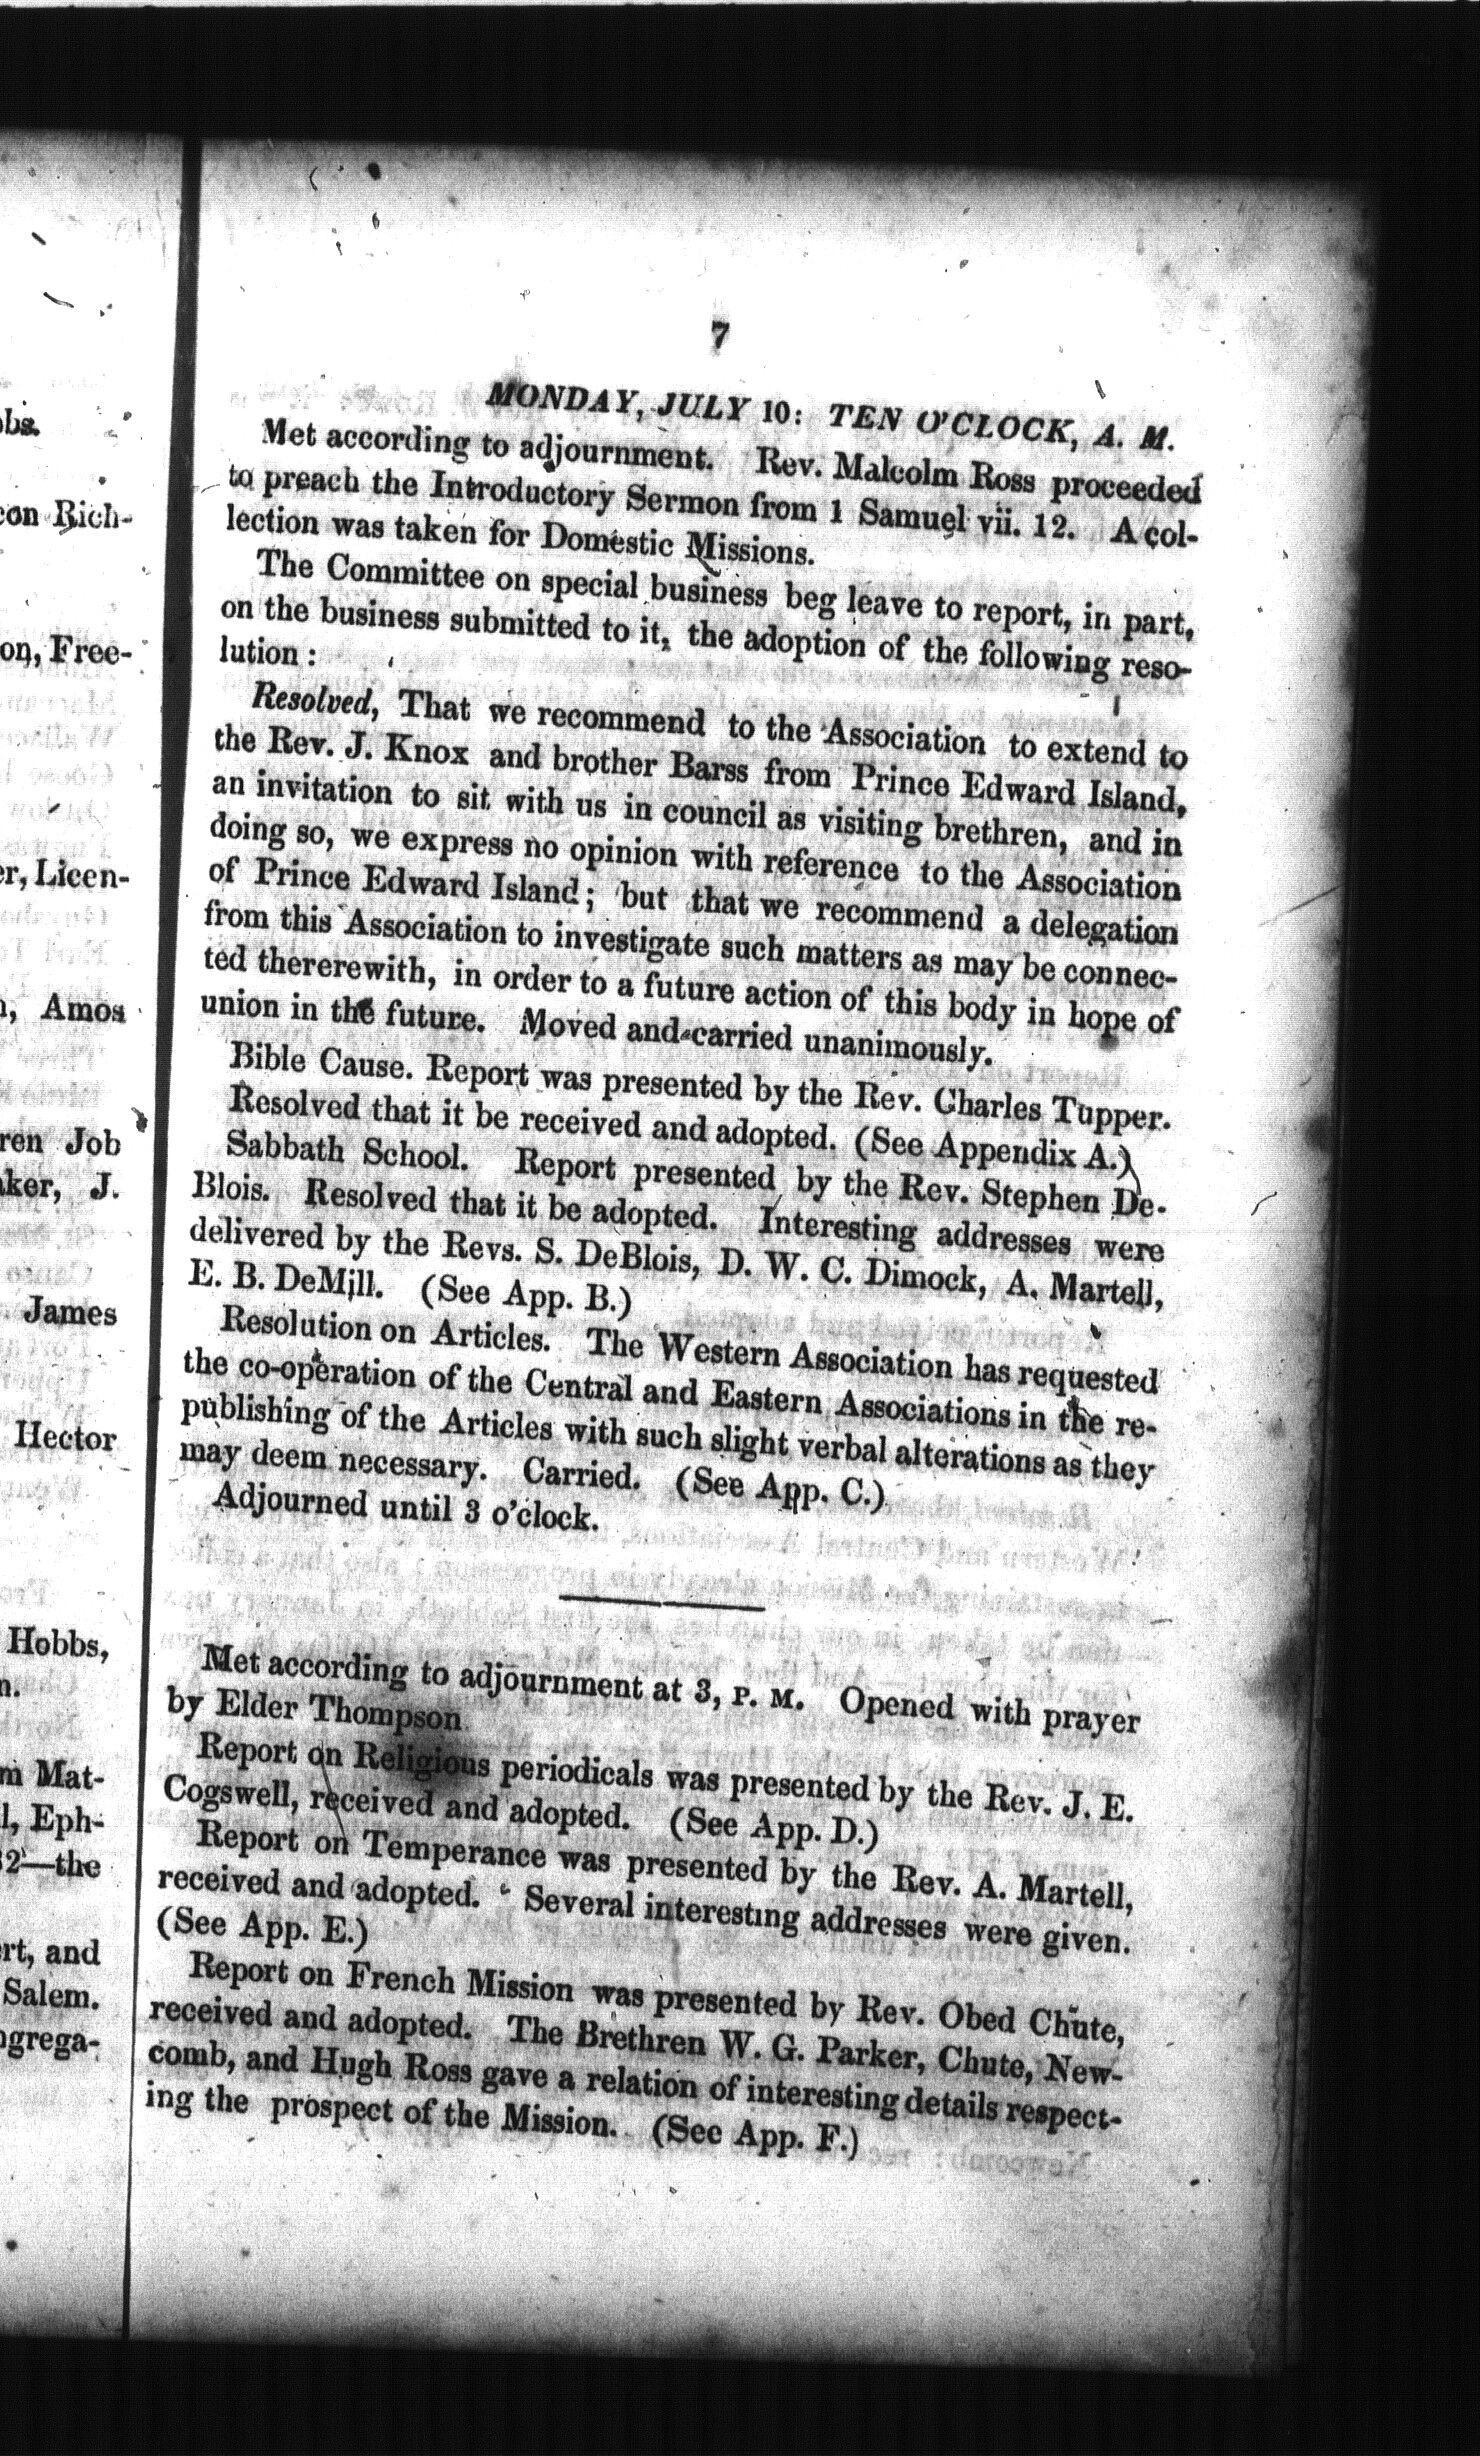 obs.
con Rich-
on, Free-
er, Licen-
n, Amos
ren Job
aker, J.
James
Hector
Hobbs,
n.
m Mat-
l, Eph-
32—the
rt, and
Salem.
ngrega-
7
MONDAY, JULY 10: TEN O'CLOCK, A. M.
Met according to adjournment. Rev. Malcolm Ross proceeded
to preach the Introductory Sermon from 1 Samuel vii. 12. A col-
lection was taken for Domestic Missions.
The Committee on special business beg leave to report, in part,
on the business submitted to it, the adoption of the following reso-
lution:
Resolved, That we recommend to the Association to extend to
the Rev. J. Knox and brother Barss from Prince Edward Island,
an invitation to sit with us in council as visiting brethren, and in
doing so, we express no opinion with reference to the Association
of Prince Edward Island; but that we recommend a delegation
from this Association to investigate such matters as may be connec-
ted thererewith, in order to a future action of this body in hope of
union in the future. Moved and carried unanimously.
Bible Cause. Report was presented by the Rev. Charles Tupper.
Resolved that it be received and adopted. (See Appendix A.)
Sabbath School. Report presented by the Rev. Stephen De-
Blois. Resolved that it be adopted. Interesting addresses were
delivered by the Revs. S. DeBlois, D. W. C. Dimock, A. Martell,
E. B. DeMill. (See App. B.)
Resolution on Articles. The Western Association has requested
the co-operation of the Central and Eastern Associations in the re-
publishing of the Articles with such slight verbal alterations as they
may deem necessary. Carried. (See App. C.)
Adjourned until 3 o'clock.
Met according to adjournment at 3, P. M. Opened with prayer
by Elder Thompson.
Report on Religious periodicals was presented by the Rev. J. E.
Cogswell, received and adopted. (See App. D.)
Report on Temperance was presented by the Rev. A. Martell,
received and adopted. Several interesting addresses were given.
(See App. E.)
Report on French Mission was presented by Rev. Obed Chute,
received and adopted. The Brethren W. G. Parker, Chute, New-
comb, and Hugh Ross gave a relation of interesting details respect-
ing the prospect of the Mission. (See App. F.)